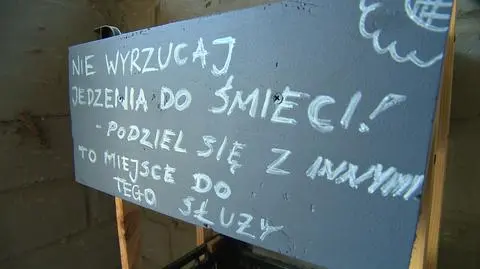 NIE WYRZUCAJ
JEDZENIA DO ŚMIECI!
- PODZIEL SIĘ Z INNYMI
TO MIEJSCE DO
TEGO SŁUŻY